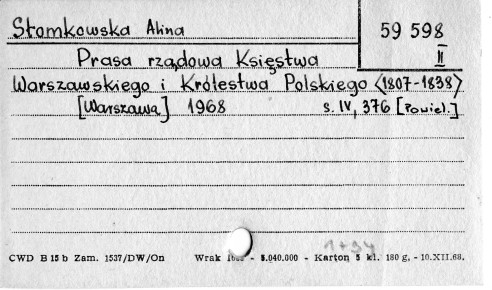 Słomkowska Alina
59 598
II
Prasa rządowa Księstwa
Warszawskiego i Królestwa Polskiego <1807-1838>
[Warszawa] 1968 s. IV, 376 [Powiel.]
1+94
CWD B 15 b Zam. 1537/DW/On Wrak - 5.040.000 - Karton 5 kl. 180 g. - 10.XII.68.